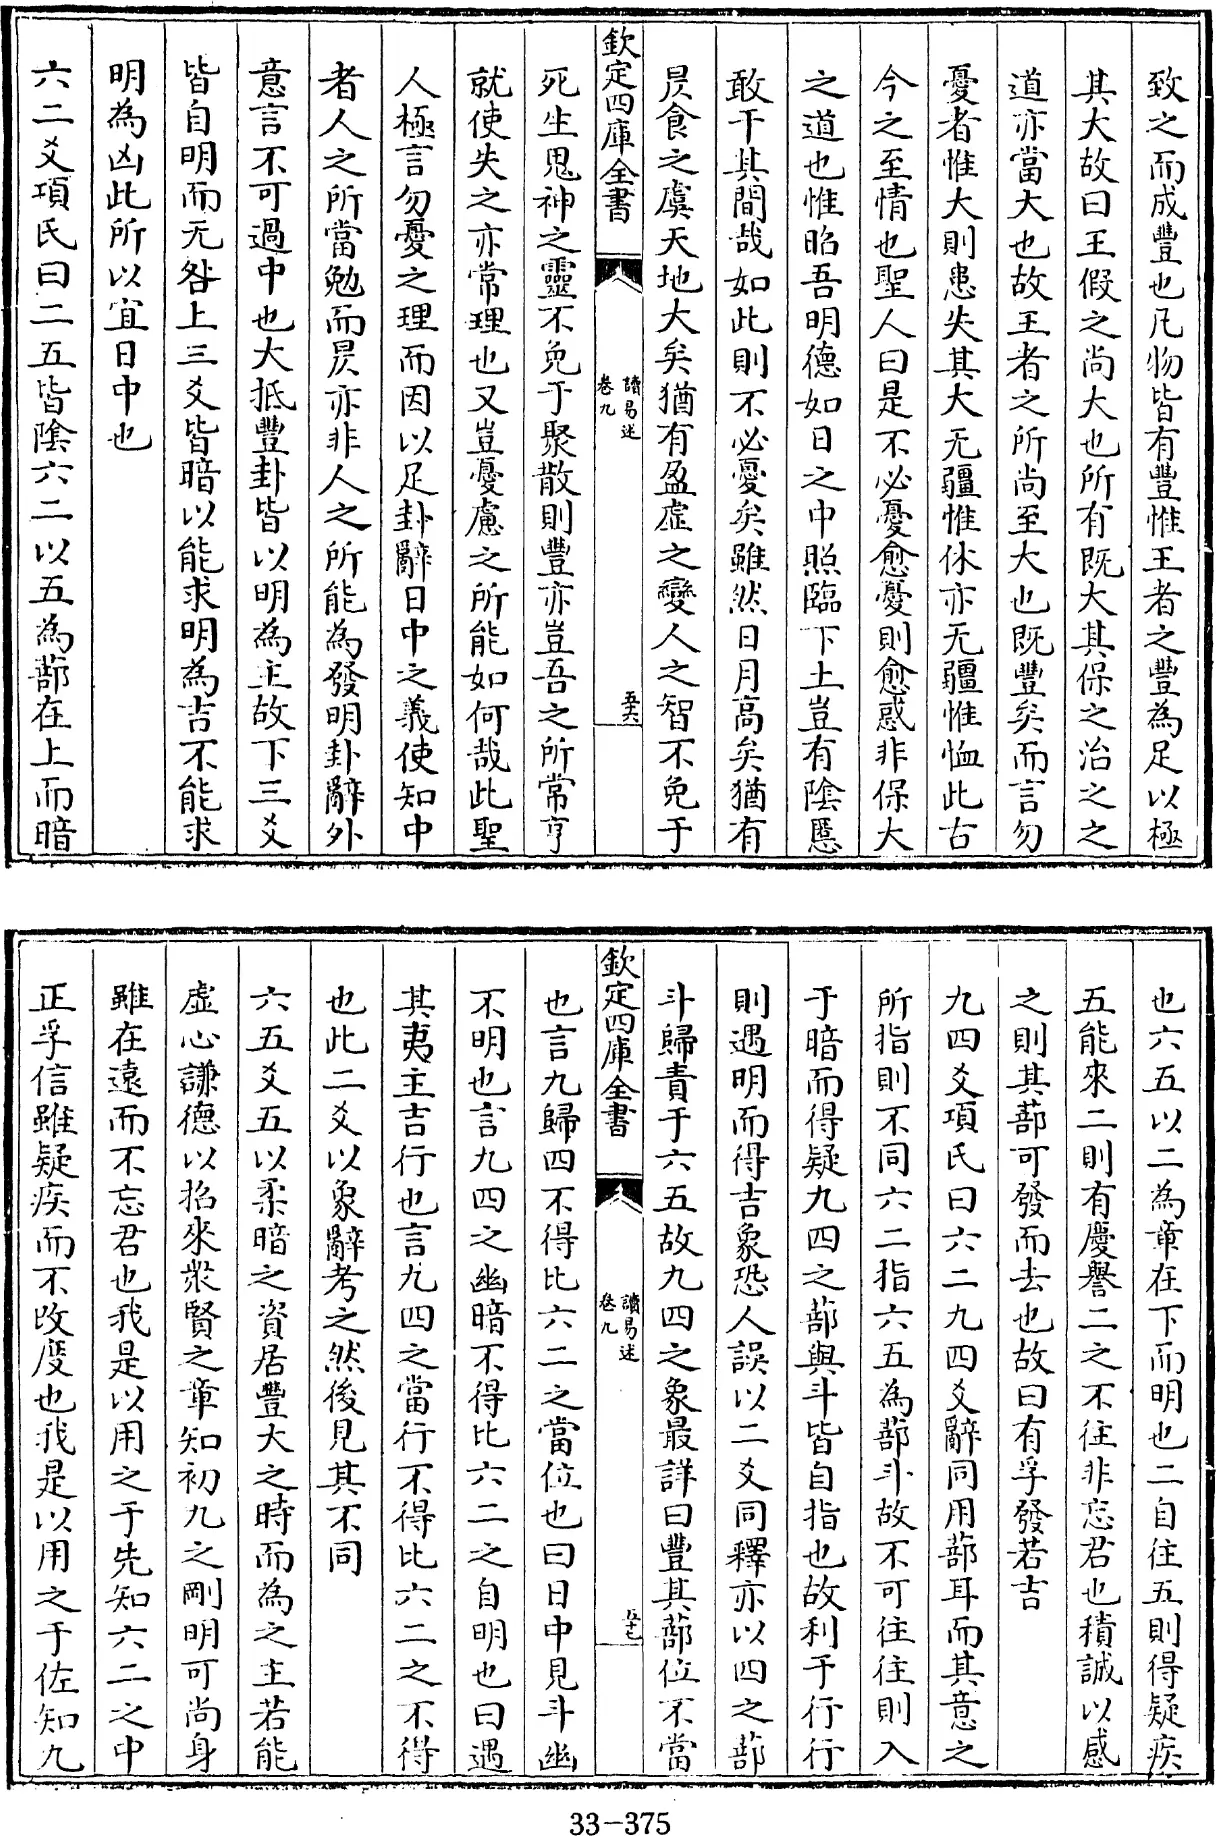 致之而成豐也凡物皆有豐惟王者之豐為足以極
其大故曰王假之尚大也所有既大其保之治之之
道亦當大也故王者之所尚至大也既豐矣而言勿
憂者惟大則患失其大无疆惟休亦无疆惟恤此古
今之至情也聖人曰是不必憂愈憂則愈惑非保大
之道也惟昭吾明德如日之中照臨下土豈有陰慝
敢干其間哉如此則不必憂矣雖然日月高矣猶有
昃食之虞天地大矣猶有盈虛之變人之智不免于
欽定四庫全書
讀易述
卷九
五十六
死生鬼神之靈不免于聚散則豐亦豈吾之所常亨
就使失之亦常理也又豈憂慮之所能如何哉此聖
人極言勿憂之理而因以足卦辭日中之義使知中
者人之所當勉而昃亦非人之所能為發明卦辭外
意言不可過中也大抵豐卦皆以明為主故下三爻
皆自明而无咎上三爻皆暗以能求明為吉不能求
明為凶此所以宜日中也
六二爻項氏曰二五皆陰六二以五為蔀在上而暗
也六五以二為章在下而明也二自往五則得疑疾
五能來二則有慶譽二之不往非忘君也積誠以感
之則其蔀可發而去也故曰有孚發若吉
九四爻項氏曰六二九四爻辭同用蔀耳而其意之
所指則不同六二指六五為蔀斗故不可往往則入
于暗而得疑九四之蔀與斗皆自指也故利于行行
則遇明而得吉象恐人誤以二爻同釋亦以四之蔀
斗歸責于六五故九四之象最詳曰豐其蔀位不當
欽定四庫全書
讀易述
卷九
五十七
也言九歸四不得比六二之當位也曰日中見斗幽
不明也言九四之幽暗不得比六二之自明也曰遇
其夷主吉行也言九四之當行不得比六二之不得
也此二爻以象辭考之然後見其不同
六五爻五以柔暗之資居豐大之時而為之主若能
虛心謙德以招來眾賢之章知初九之剛明可尚身
雖在遠而不忘君也我是以用之于先知六二之中
正孚信雖疑疾而不改度也我是以用之于佐知九
33-375